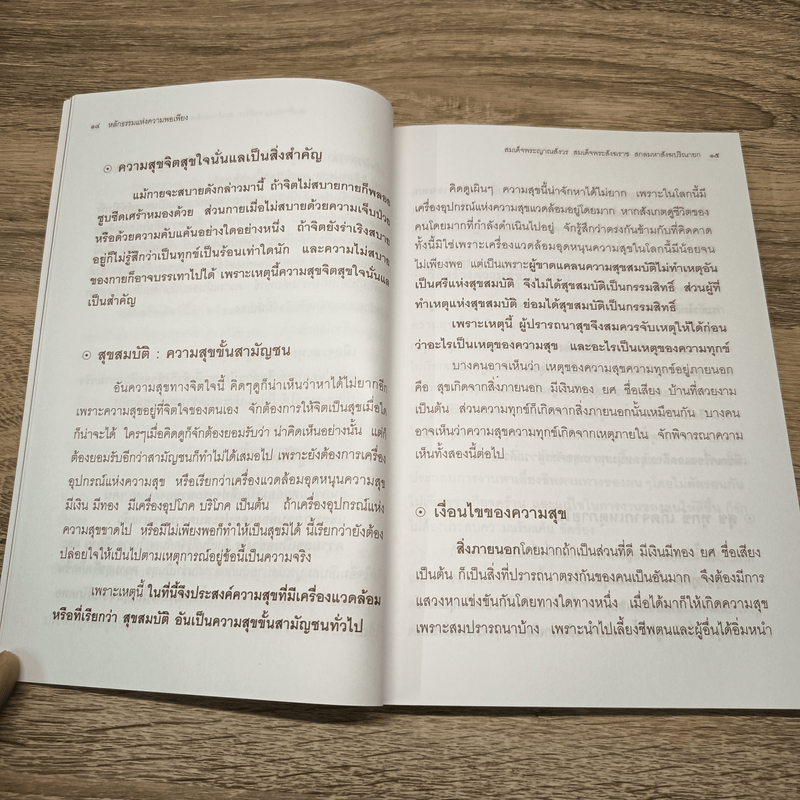 ๑๔ หลักธรรมแห่งความพอเพียง
⊙ ความสุขจิตสุขใจนั่นแลเป็นสิ่งสำคัญ
แม้กายจะสบายดังกล่าวมานี้ ถ้าจิตไม่สบายกายก็พลอย
ซูบซีดเศร้าหมองด้วย ส่วนกายเมื่อไม่สบายด้วยความเจ็บป่วย
หรือด้วยความคับแค้นอย่างใดอย่างหนึ่ง ถ้าจิตยังร่าเริงสบาย
อยู่ก็ไม่รู้สึกว่าเป็นทุกข์เป็นร้อนเท่าใดนัก และความไม่สบาย
ของกายก็อาจบรรเทาไปได้ เพราะเหตุนี้ความสุขจิตสุขใจนั่นแล
เป็นสำคัญ
⊙ สุขสมบัติ : ความสุขขั้นสามัญชน
อันความสุขทางจิตใจนี้ คิดๆดูก็น่าเห็นว่าหาได้ไม่ยากอีก
เพราะความสุขอยู่ที่จิตใจของตนเอง จักต้องการให้จิตเป็นสุขเมื่อใด
ก็น่าจะได้ ใครๆเมื่อคิดดูก็จักต้องยอมรับว่า น่าคิดเห็นอย่างนั้น แต่ก็
ต้องยอมรับอีกว่าสามัญชนก็ทำไม่ได้เสมอไป เพราะยังต้องการเครื่อง
อุปกรณ์แห่งความสุข หรือเรียกว่าเครื่องแวดล้อมอุดหนุนความสุข
มีเงิน มีทอง มีเครื่องอุปโภค บริโภค เป็นต้น ถ้าเครื่องอุปกรณ์แห่ง
ความสุขขาดไป หรือมีไม่เพียงพอก็ทำให้เป็นสุขมิได้ นี้เรียกว่ายังต้อง
ปล่อยใจให้เป็นไปตามเหตุการณ์อยู่ข้อนี้เป็นความจริง
เพราะเหตุนี้ ในที่นี้จึงประสงค์ความสุขที่มีเครื่องแวดล้อม
หรือที่เรียกว่า สุขสมบัติ อันเป็นความสุขขั้นสามัญชนทั่วไป
สมเด็จพระญาณสังวร สมเด็จพระสังฆราช สกลมหาสังฆปริณายก ๑๕
คิดดูเผินๆ ความสุขนี้น่าจักหาได้ไม่ยาก เพราะในโลกนี้มี
เครื่องอุปกรณ์แห่งความสุขแวดล้อมอยู่โดยมาก หากสังเกตดูชีวิตของ
คนโดยมากที่กำลังดำเนินไปอยู่ จักรู้สึกว่าตรงกันข้ามกับที่คิดคาด
ทั้งนี้มิใช่เพราะเครื่องแวดล้อมอุดหนุนความสุขในโลกนี้มีน้อยจน
ไม่เพียงพอ แต่เป็นเพราะผู้ขาดแคลนความสุขสมบัติไม่ทำเหตุอัน
เป็นศรีแห่งสุขสมบัติ จึงไม่ได้สุขสมบัติเป็นกรรมสิทธิ์ ส่วนผู้ที่
ทำเหตุแห่งสุขสมบัติ ย่อมได้สุขสมบัติเป็นกรรมสิทธิ์
เพราะเหตุนี้ ผู้ปรารถนาสุขจึงสมควรจับเหตุให้ได้ก่อน
ว่าอะไรเป็นเหตุของความสุข และอะไรเป็นเหตุของความทุกข์
บางคนอาจเห็นว่า เหตุของความสุขความทุกข์อยู่ภายนอก
คือ สุขเกิดจากสิ่งภายนอก มีเงินทอง ยศ ชื่อเสียง บ้านที่สวยงาม
เป็นต้น ส่วนความทุกข์ก็เกิดจากสิ่งภายนอกนั้นเหมือนกัน บางคน
อาจเห็นว่าความสุขความทุกข์เกิดจากเหตุภายใน จักพิจารณาความ
เห็นทั้งสองนี้ต่อไป
⊙ เงื่อนไขของความสุข
สิ่งภายนอกโดยมากถ้าเป็นส่วนที่ดี มีเงินมีทอง ยศ ชื่อเสียง
เป็นต้น ก็เป็นสิ่งที่ปรารถนาตรงกันของคนเป็นอันมาก จึงต้องมีการ
แสวงหาแข่งขันกันโดยทางใดทางหนึ่ง เมื่อได้มาก็ให้เกิดความสุข
เพราะสมปรารถนาบ้าง เพราะนำไปเลี้ยงชีพตนและผู้อื่นได้อิ่มหนำ